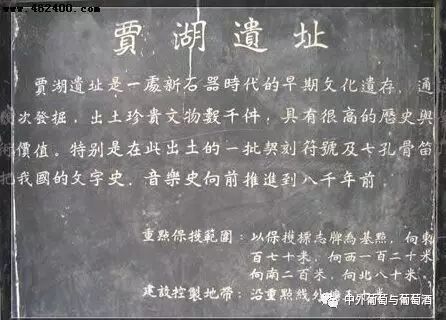 www.462400.com
賈湖遺址
賈湖遺址是一處新石器時代的早期文化遺存，通
次發掘，出土珍貴文物數千件，具有很高的歷史與
價值。特别是在此出土的一批契刻符號及七孔骨笛
把我國的文字史、音樂史向前推進到八千年前。
重點保護範圍：以保護標志牌為基點，向東
百七十米，向西一百二十米
向南二百米，向北八十米。
建設控製地帶：沿重點線外
中外葡萄与葡萄酒